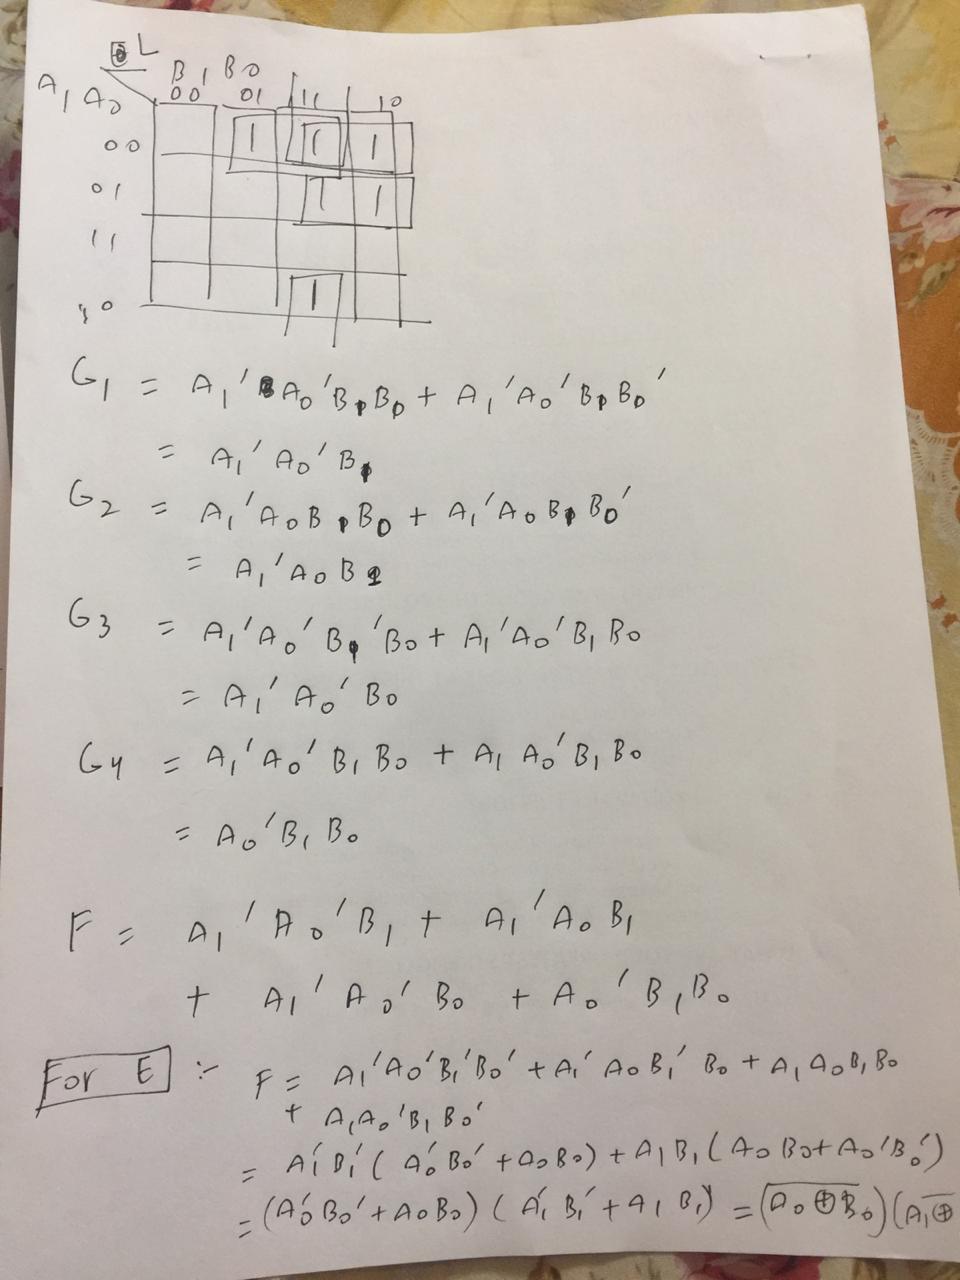 L
B1 B0
A1 A0
00 01 11 10
00 1 1 1
01 1 1
11
10 1
G1 = A1' A0' B1 B0 + A1' A0' B1 B0'
= A1' A0' B1
G2 = A1' A0 B1 B0 + A1' A0 B1 B0'
= A1' A0 B1
G3 = A1' A0' B1' B0 + A1' A0' B1 B0
= A1' A0' B0
G4 = A1' A0' B1 B0 + A1 A0' B1 B0
= A0' B1 B0
F = A1' A0' B1 + A1' A0 B1
+ A1' A0' B0 + A0' B1 B0
For E :- F = A1' A0' B1' B0' + A1' A0 B1' B0 + A1 A0 B1 B0
+ A1 A0' B1 B0'
= A1' B1' ( A0' B0' + A0 B0 ) + A1 B1 ( A0 B0 + A0' B0' )
= (A0' B0' + A0 B0) ( A1' B1' + A1 B1 ) = (A̅0̅ ̅⊕̅ ̅B̅0̅) (A̅1̅ ̅⊕̅